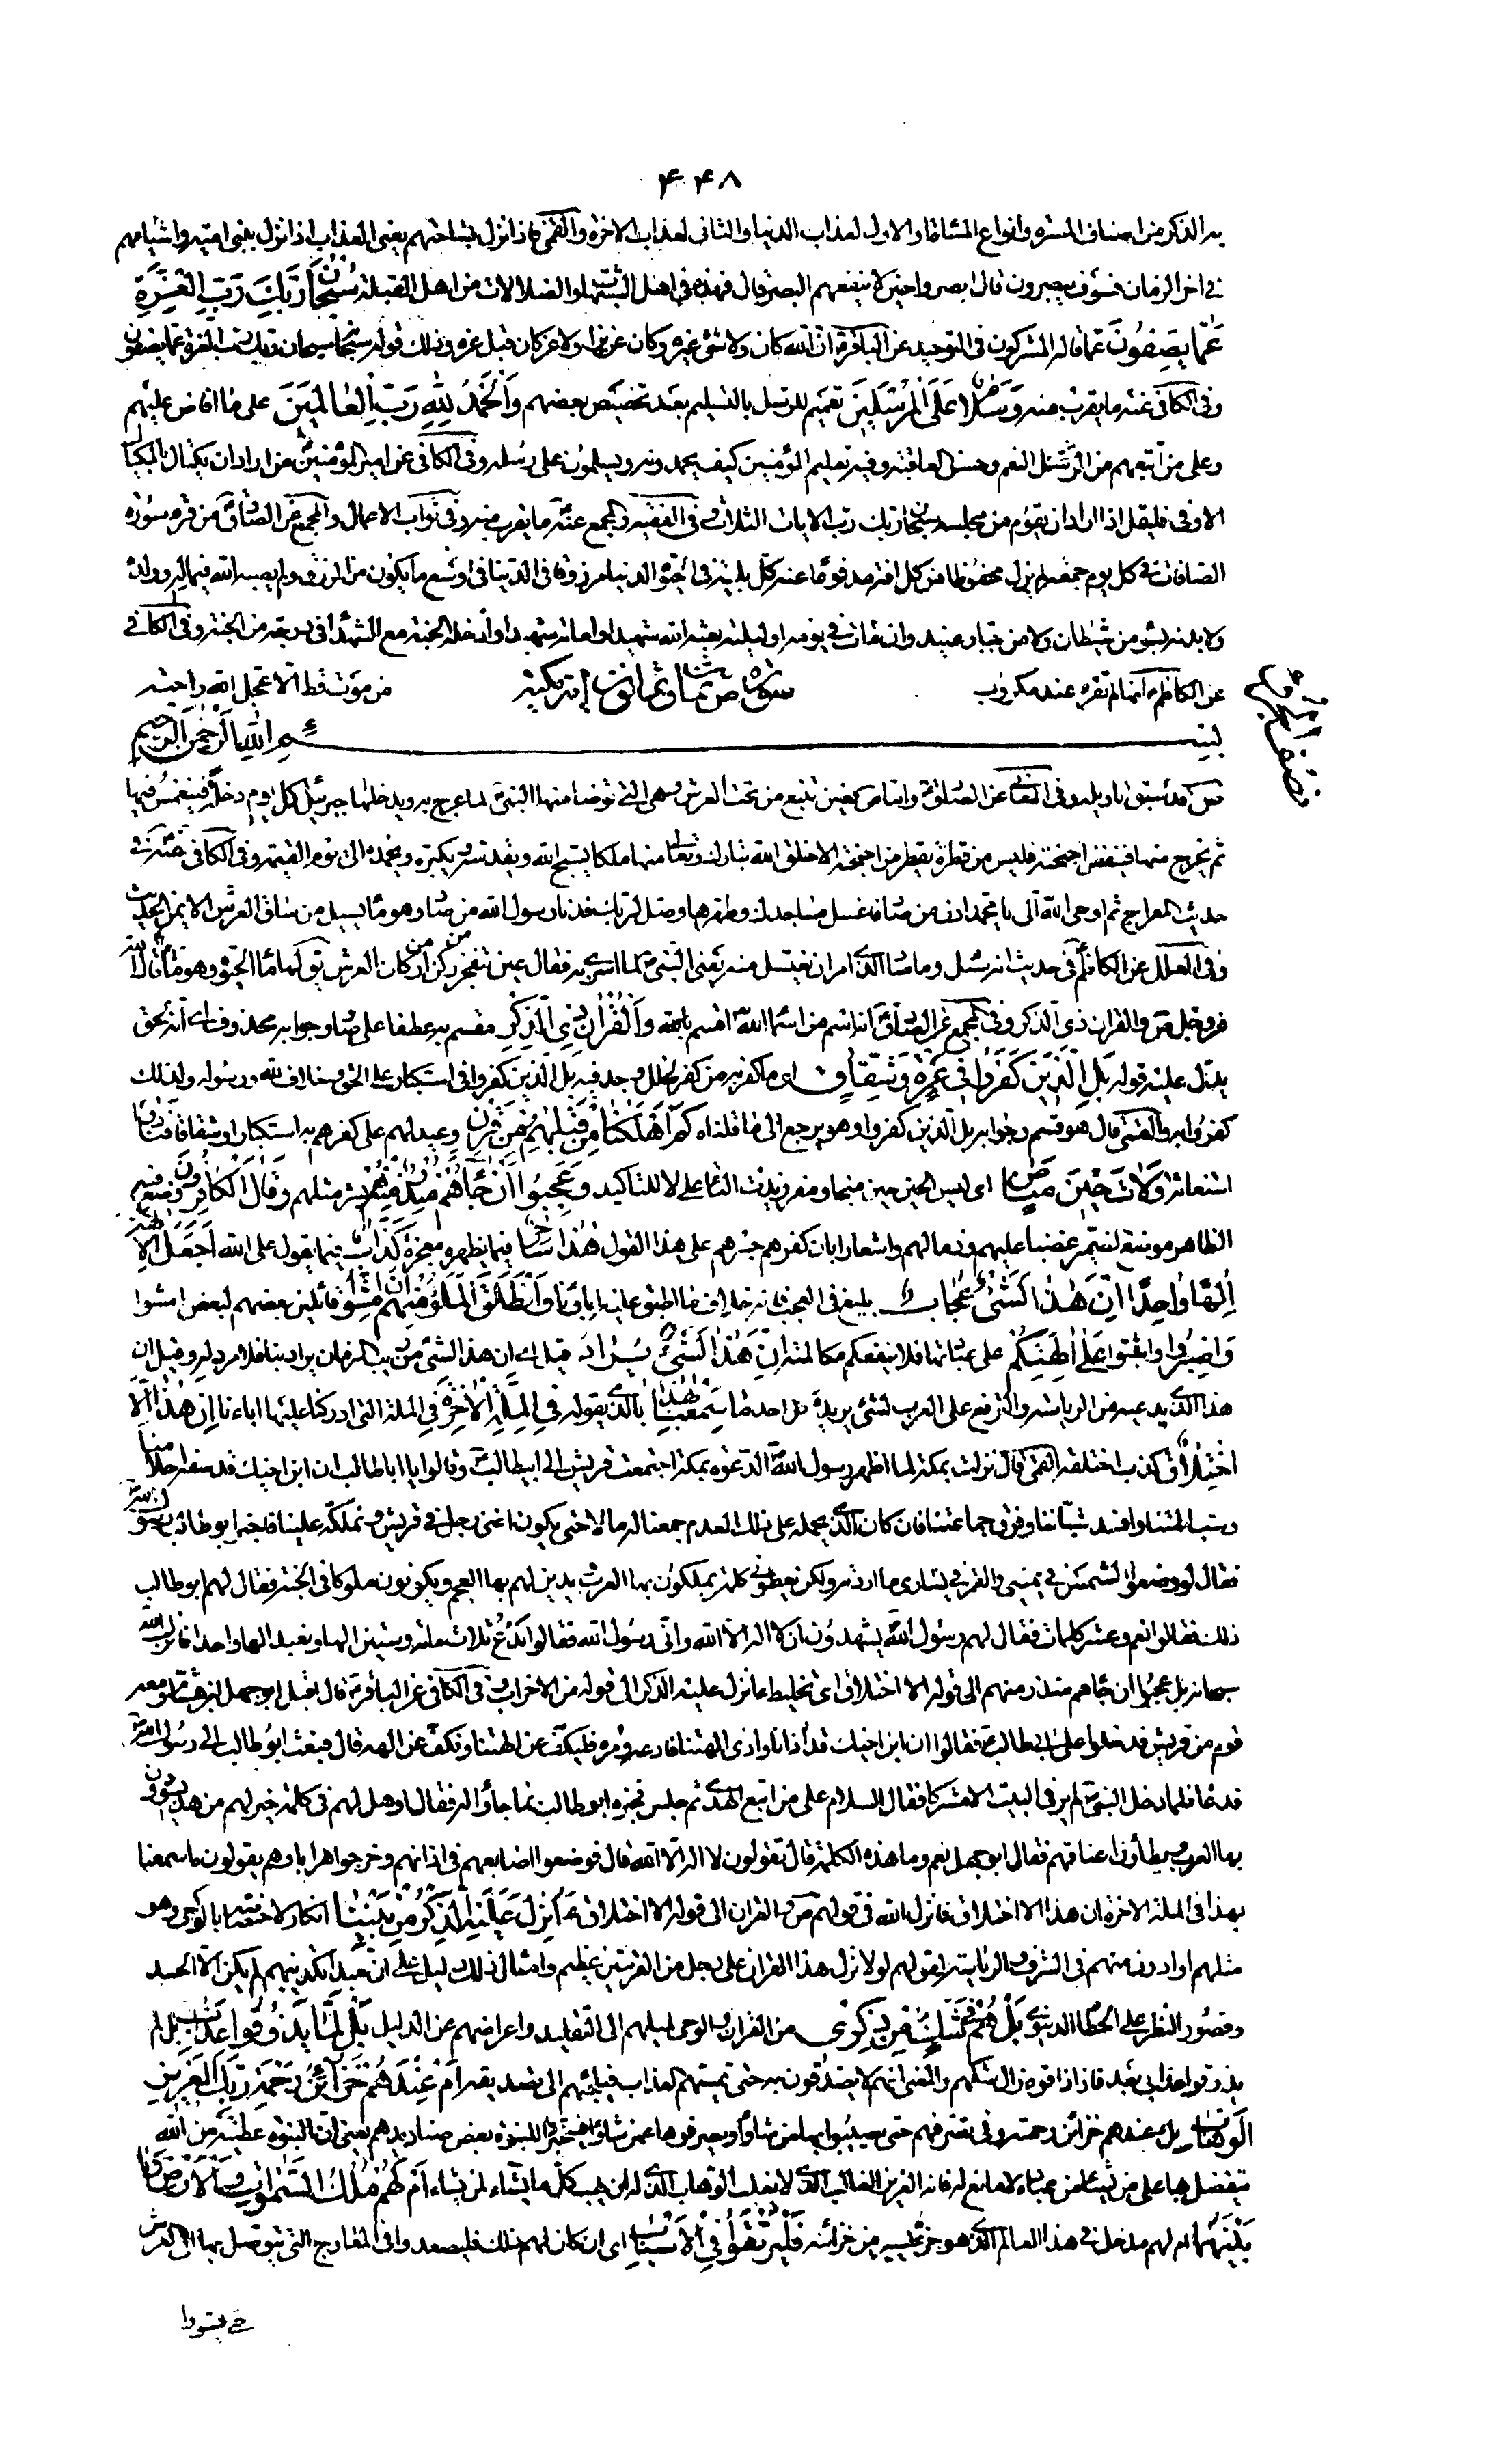 ۴۴۸
به الذكر من اصناف المسرة وانواع المسائة او الاول لعذاب الدنيا والثانى لعذاب الاخرة والقمى فاذا نزل بساحتهم يعنى العذاب اذا نزل ببنى امية واشياعهم
فى اخر الزمان فسوف يبصرون قال ابصروا حين لا ينفعهم البصر قال فهذه فى اهل الشبهات والضلالات من اهل القبلة سُبْحانَ رَبِّكَ رَبِّ الْعِزَّةِ
عَمَّا يَصِفُونَ عما قاله المشركون فى التوحيد عن الباقر ان الله كان ولا شئ غيره وكان عزيزا ولا عز كان قبل عزه وذلك قوله سبحانه سبحان ربك رب العزة عما يصفون
وفى الكافى عنه ما يقرب منه وَسَلامٌ عَلَى الْمُرْسَلِينَ تعميم للرسل بالتسليم بعد تخصيص بعضهم وَالْحَمْدُ لِلَّهِ رَبِّ الْعالَمِينَ على ما افاض عليهم
وعلى من اتبعهم من النعم وحسن العاقبة وفيه تعليم المؤمنين كيف يحمدونه ويسلمون على رسله وفى الكافى عن امير المؤمنين من اراد ان يكتال بالمكيال
الاوفى فليقل اذا اراد ان يقوم من مجلسه سبحان ربك رب الايات الثلاث وفى الفقيه والمجمع عنه ما يقرب منه وفى ثواب الاعمال والمجمع عن الصادق من قرء سورة
الصافات فى كل يوم جمعة لم يزل محفوظا من كل افة مدفوعا عنه كل بلية فى الحيوة الدنيا مرزوقا فى الدنيا فى اوسع ما يكون من الرزق ولم يصبه الله فى ماله وولده
ولا بدنه بسوء من شيطان ولا من جبار عنيد وان مات فى يومه او ليلته بعثه الله شهيدا واماته شهيدا وادخله الجنة مع الشهداء فى درجة من الجنة وفى الكافى
عن الكاظم انها لم تقرء عند مكروب من موت قط الا عجل الله راحته
سورة ص ثمان وثمانون اية مكية
بسم الله الرحمن الرحيم
ص قد سبق تاويله وفى المعانى عن الصادق واما ص فعين تنبع من تحت العرش وهى التى توضأ منها النبى لما عرج به ويدخلها جبرئيل كل يوم دخلة فينغمس فيها
ثم يخرج منها فينفض اجنحته فليس من قطرة تقطر من اجنحته الا خلق الله تبارك وتعالى منها ملكا يسبح الله ويقدسه ويكبره ويحمده الى يوم القيمة وفى الكافى عنه فى
حديث المعراج ثم اوحى الله الى يا محمد ادن من صاد فاغسل مساجدك وطهرها وصل لربك فدنا رسول الله من صاد وهو ماء يسيل من ساق العرش الايمن الحديث
وفى العلل عن الكاظم فى حديث انه سئل وما صاد الذى امر ان يغتسل منه يعنى النبى لما اسرى به فقال عين تنفجر من ركن من اركان العرش يقال لها ماء الحيوة وهو ما قال الله
عز وجل ص والقران ذى الذكر وفى المجمع عن الصادق انه اسم من اسماء الله اقسم به وَالْقُرْآنِ ذِي الذِّكْرِ مقسم به عطفا على صاد وجوابه محذوف اى انه لحق
يدل عليه قوله بَلِ الَّذِينَ كَفَرُوا فِي عِزَّةٍ وَشِقاقٍ اى ما كفر به من كفر لخلل وجد فيه بل الذين كفروا فى استكبار عن الحق وخلاف لله ورسوله ولذلك
كفروا به والقمى قال هو قسم وجوابه بل الذين كفروا وهو يرجع الى ما قلناه كَمْ أَهْلَكْنا مِنْ قَبْلِهِمْ مِنْ قَرْنٍ وعيد لهم على كفرهم به استكبارا وشقاقا فَنادَوْا
استغاثة وَلاتَ حِينَ مَناصٍ اى ليس الحين حين منجا ومفر زيدت التاء على لا للتاكيد وَعَجِبُوا أَنْ جاءَهُمْ مُنْذِرٌ مِنْهُمْ بشر مثلهم وَقالَ الْكافِرُونَ وضع فيه
الظاهر موضع الضمير غضبا عليهم وذما لهم واشعارا بان كفرهم جسرهم على هذا القول هذا ساحِرٌ فيما يظهره معجزة كَذَّابٌ فيما يقول على الله أَجَعَلَ الْآلِهَةَ
إِلهاً واحِداً إِنَّ هذا لَشَيْءٌ عُجابٌ بليغ فى العجب فانه خلاف ما اطبق عليه اباؤنا وَانْطَلَقَ الْمَلَأُ مِنْهُمْ أَنِ امْشُوا قائلين بعضهم لبعض امشوا
وَاصْبِرُوا واثبتوا عَلى آلِهَتِكُمْ على عبادتها فلا ينفعكم مكالمته إِنَّ هذا لَشَيْءٌ يُرادُ قيل اى ان هذا لشئ من ريب الزمان يراد بنا فلا مرد له وقيل ان
هذا الذى يدعيه من الرياسة والترفع على العرب لشئ يريده كل احد ما سَمِعْنا بِهذا بالذى يقوله فِي الْمِلَّةِ الْآخِرَةِ فى الملة التى ادركنا عليها اباءنا إِنْ هذا إِلَّا
اخْتِلاقٌ كذب اختلقه القمى قال نزلت بمكة لما اظهر رسول الله الدعوة بمكة اجتمعت قريش الى ابيطالب وقالوا يا ابا طالب ان ابن اخيك قد سفه احلامنا
وسب الهتنا وافسد شباننا وفرق جماعتنا فان كان الذى يحمله على ذلك العدم جمعنا له مالا حتى يكون اغنى رجل فى قريش ونملكه علينا فاخبر ابو طالب رسول الله
فقال لو وضعوا الشمس فى يمينى والقمر فى يسارى ما اردته ولكن يعطونى كلمة يملكون بها العرب ويدين لهم بها العجم ويكونون ملوكا فى الجنة فقال لهم ابو طالب
ذلك فقالوا نعم وعشر كلمات فقال لهم رسول الله يشهدون ان لا اله الا الله وانى رسول الله فقالوا ندع ثلاث مائة وستين الها ونعبد الها واحدا فانزل الله
سبحانه بل عجبوا ان جاءهم منذر منهم الى قوله الا اختلاق اى تخليط ءانزل عليه الذكر الى قوله من الاحزاب وفى الكافى عن الباقر قال اقبل ابو جهل بن هشام ومعه
قوم من قريش فدخلوا على ابى طالب فقالوا ان ابن اخيك قد اذانا واذى الهتنا فادعه ومره فليكف عن الهتنا ونكف عن الهه قال فبعث ابو طالب الى رسول الله
فدعاه فلما دخل النبى لم ير فى البيت الا مشركا فقال السلام على من اتبع الهدى ثم جلس فخبره ابو طالب بما جاؤا له فقال او هل لهم فى كلمة خير لهم من هذا يسودون
بها العرب ويطأون اعناقهم فقال ابو جهل نعم وما هذه الكلمة قال تقولون لا اله الا الله قال فوضعوا اصابعهم فى اذانهم وخرجوا هرابا وهم يقولون ما سمعنا
بهذا فى الملة الاخرة ان هذا الا اختلاق فانزل الله فى قولهم ص والقران الى قوله الا اختلاق أَأُنْزِلَ عَلَيْهِ الذِّكْرُ مِنْ بَيْنِنا انكار لاختصاصه بالوحى وهو
مثلهم او ادون منهم فى الشرف والرياسة لقولهم لولا نزل هذا القران على رجل من القريتين عظيم وامثال ذلك دليل على ان مبدء تكذيبهم لم يكن الا الحسد
وقصور النظر على الحطام الدنيوى بَلْ هُمْ فِي شَكٍّ مِنْ ذِكْرِي من القران والوحى لميلهم الى التقليد واعراضهم عن الدليل بَلْ لَمَّا يَذُوقُوا عَذابِ بل لم
يذوقوا عذابى بعد فاذا ذاقوه زال شكهم والمعنى انهم لا يصدقون به حتى يمسهم العذاب فيلجئهم الى تصديقه أَمْ عِنْدَهُمْ خَزائِنُ رَحْمَةِ رَبِّكَ الْعَزِيزِ
الْوَهَّابِ بل عندهم خزائن رحمته وفى تصرفهم حتى يصيبوا بها من شاؤا ويصرفوها عمن شاؤا فيتخيروا للنبوة بعض صناديدهم يعنى ان النبوة عطية من الله
يتفضل بها على من يشاء من عباده لا مانع له فانه العزيز الغالب الذى لا يغلب الوهاب الذى له ان يهب كل ما يشاء لمن يشاء أَمْ لَهُمْ مُلْكُ السَّماواتِ وَالْأَرْضِ وَما
بَيْنَهُما ام لهم مدخل فى هذا العالم الذى هو جزء يسير من خزائنه فَلْيَرْتَقُوا فِي الْأَسْبابِ اى ان كان لهم ذلك فليصعدوا فى المعارج التى يتوصل بها الى العرش